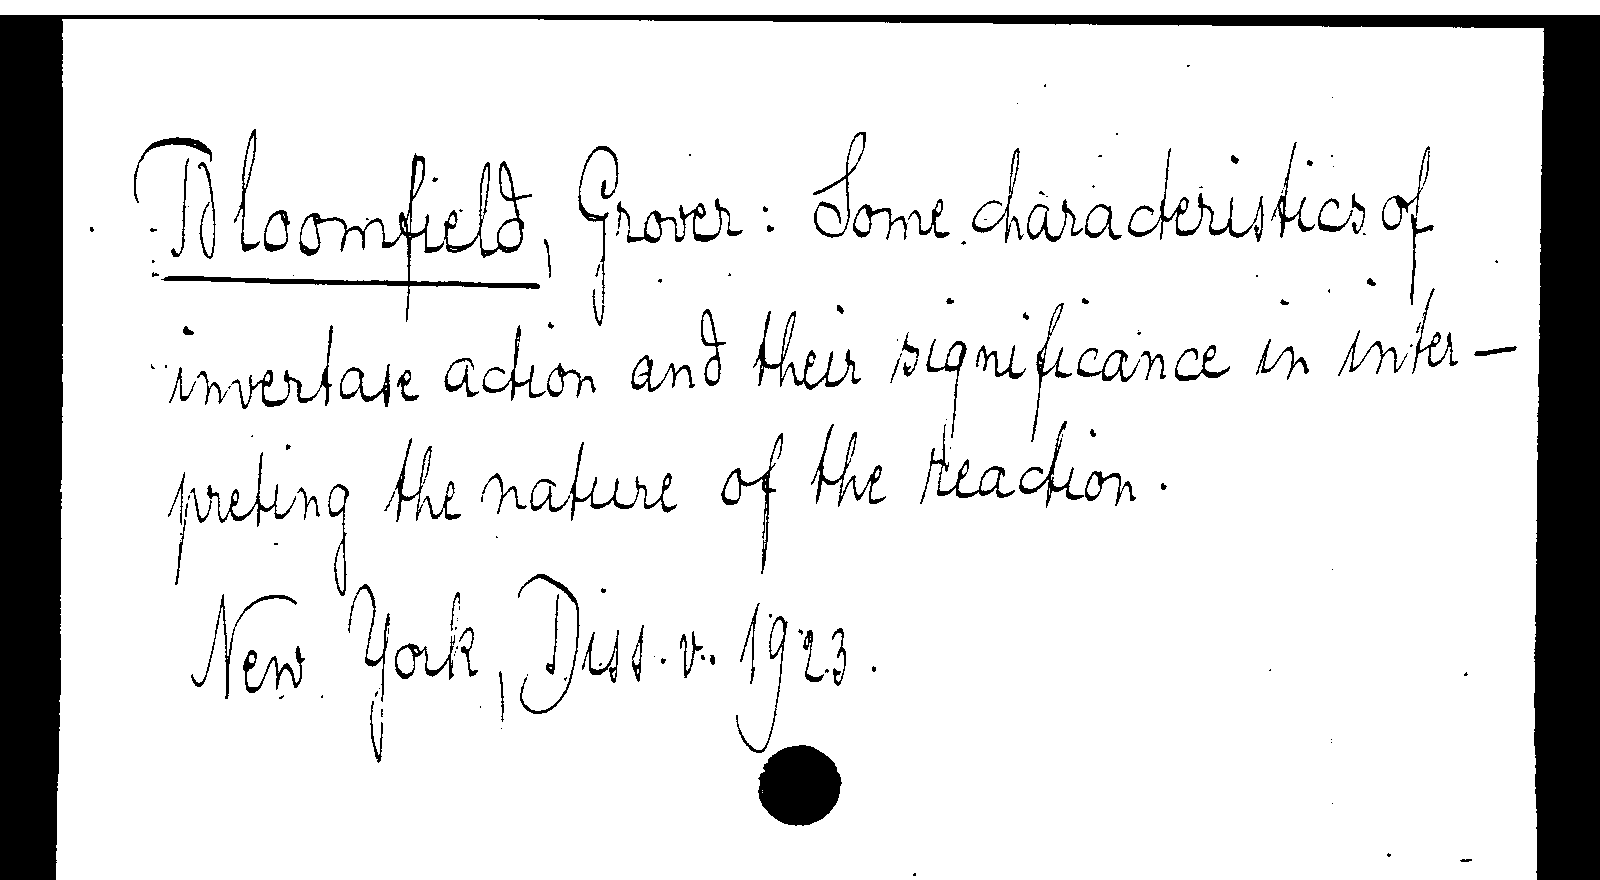 Bloomfield, Grover: Some characteristics of
invertase action and their significance in inter-
preting the nature of the reaction.
New York, Diss. v. 1923.